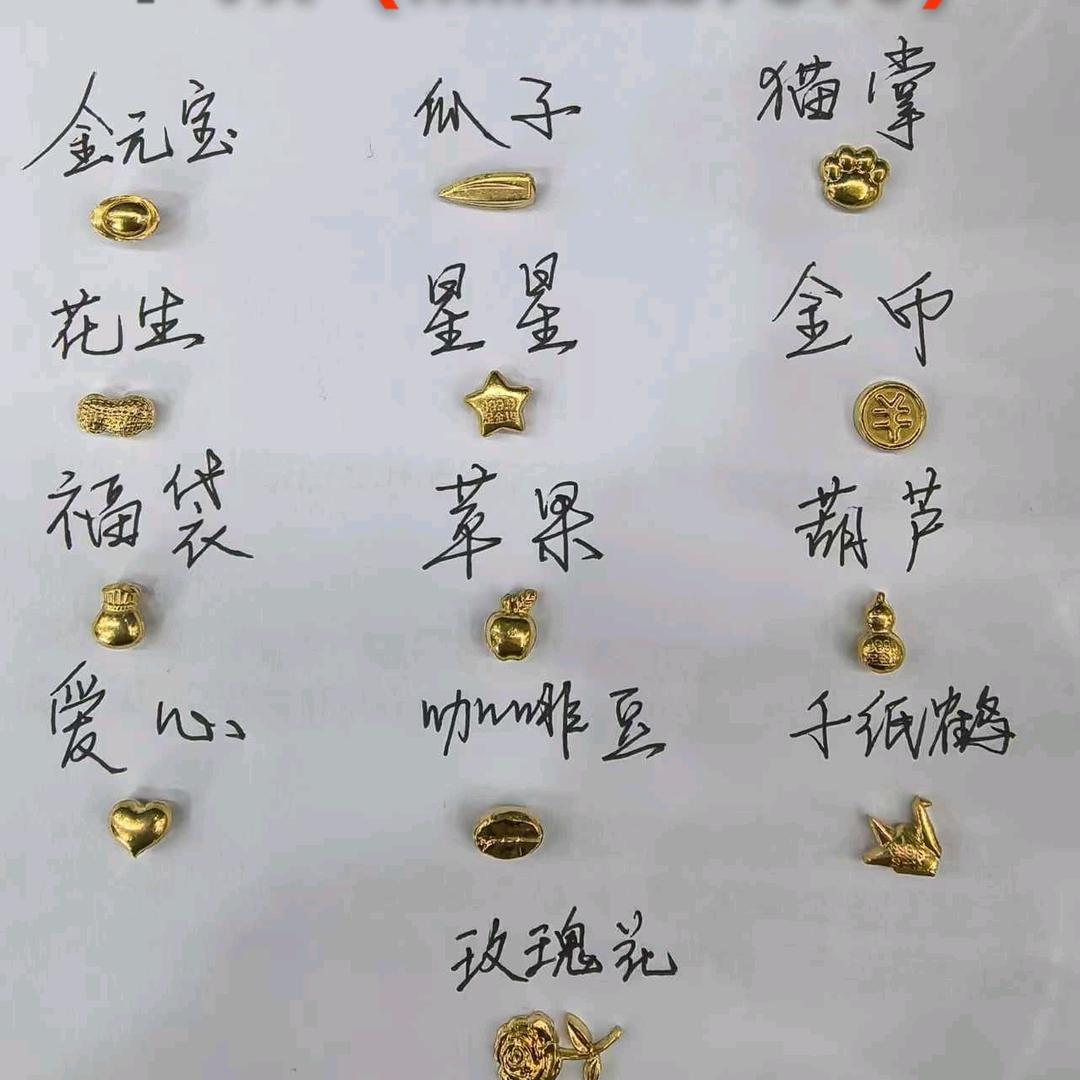 金元宝 瓜子 猫掌
花生 星星 金币
¥
福袋 苹果 葫芦
爱心 咖啡豆 千纸鹤
玫瑰花